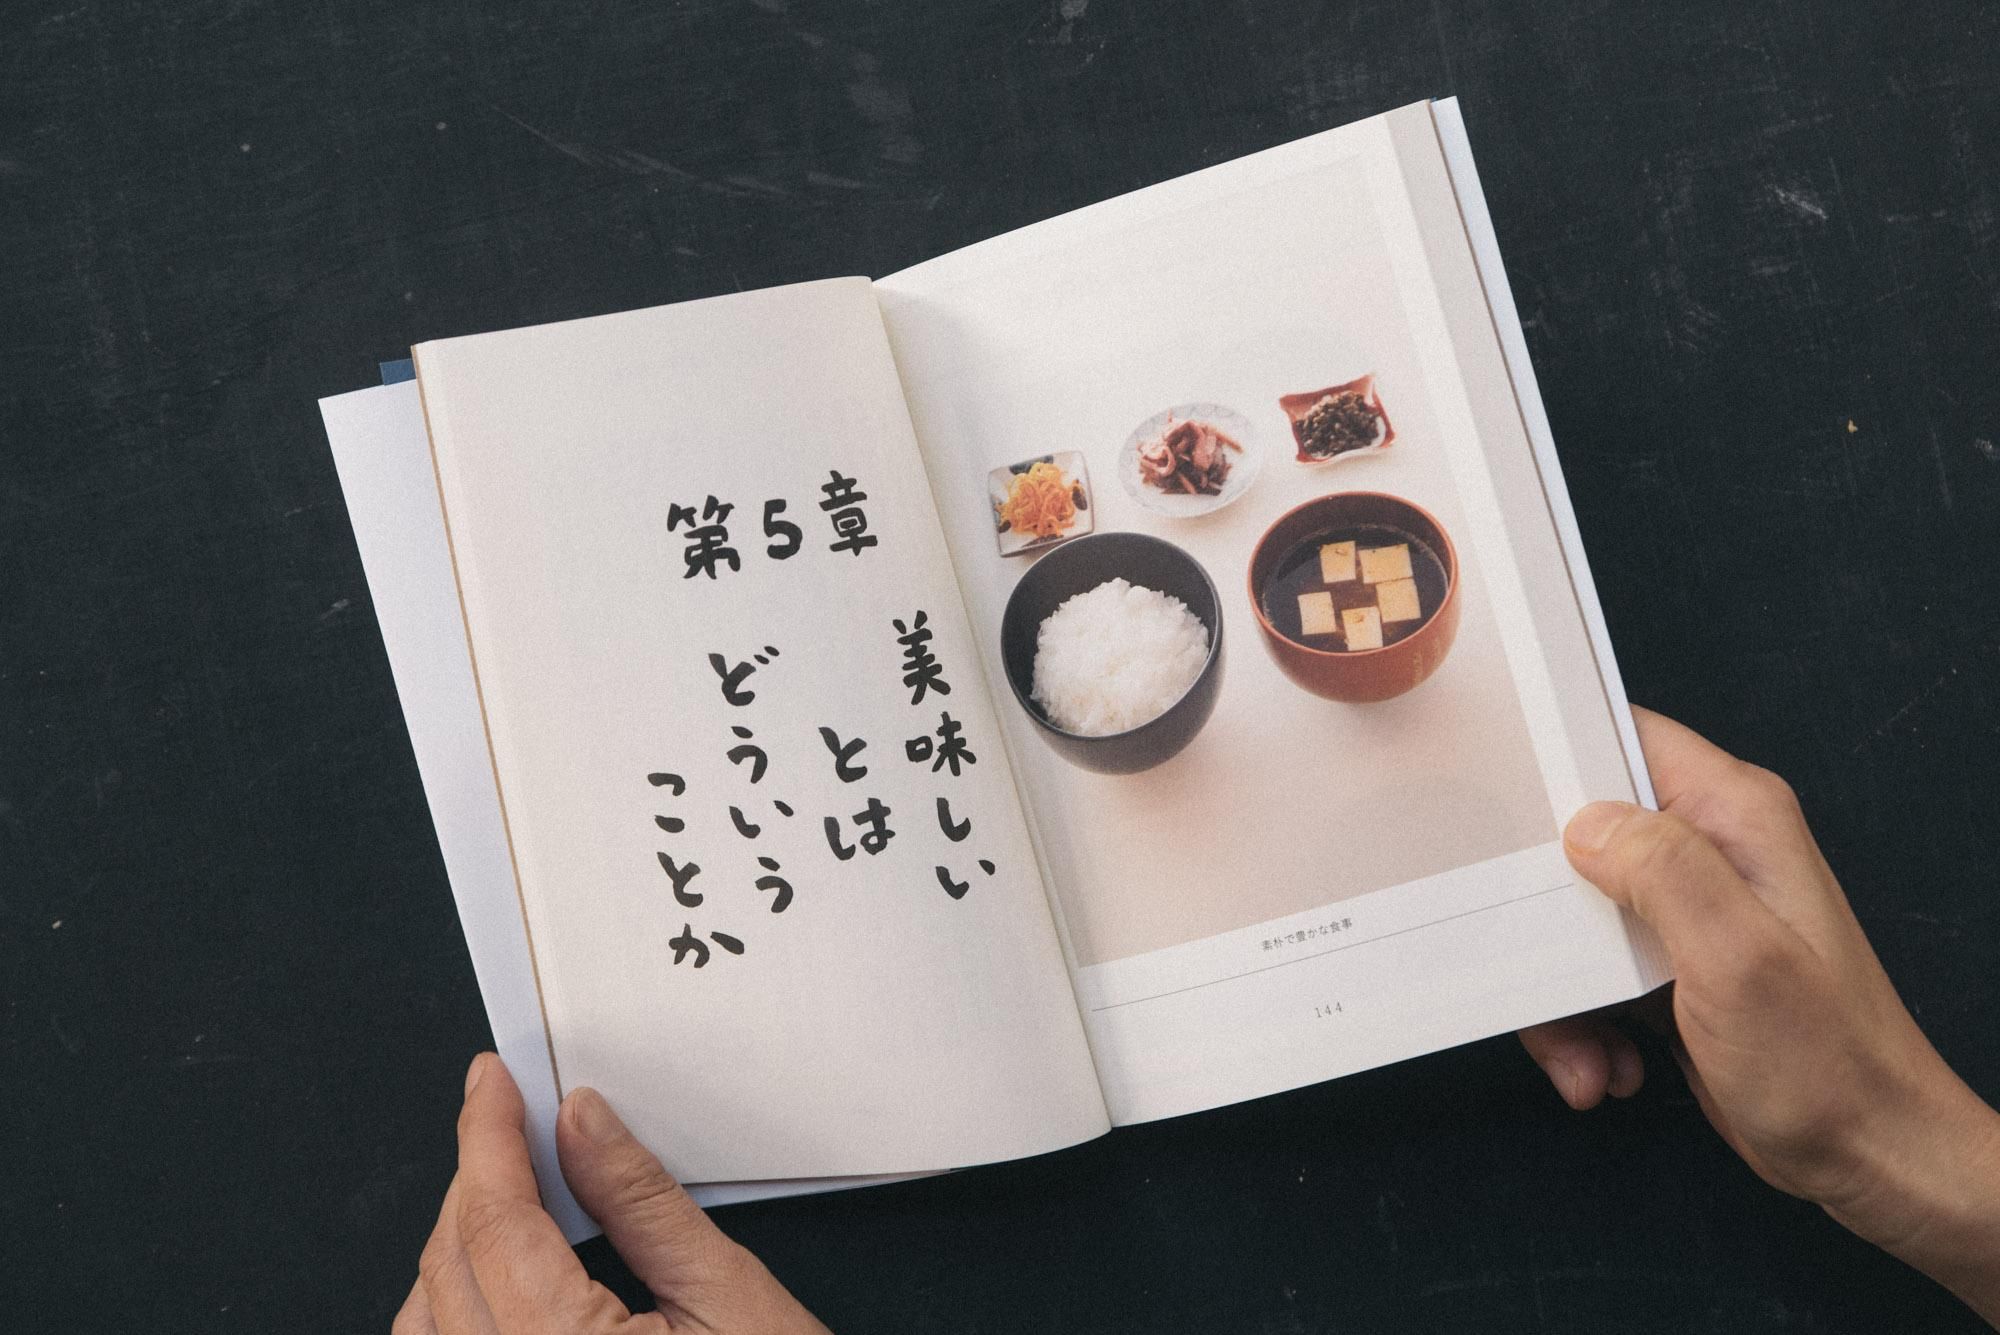 第5章
美味しい
とは
どういう
ことか
素朴で豊かな食事
144